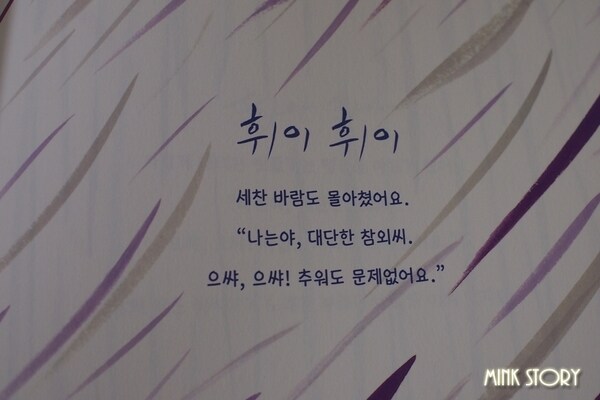 휘이 휘이
세찬 바람도 몰아쳤어요.
“나는야, 대단한 참외씨.
으쌰, 으쌰! 추워도 문제없어요.”
MINK STORY